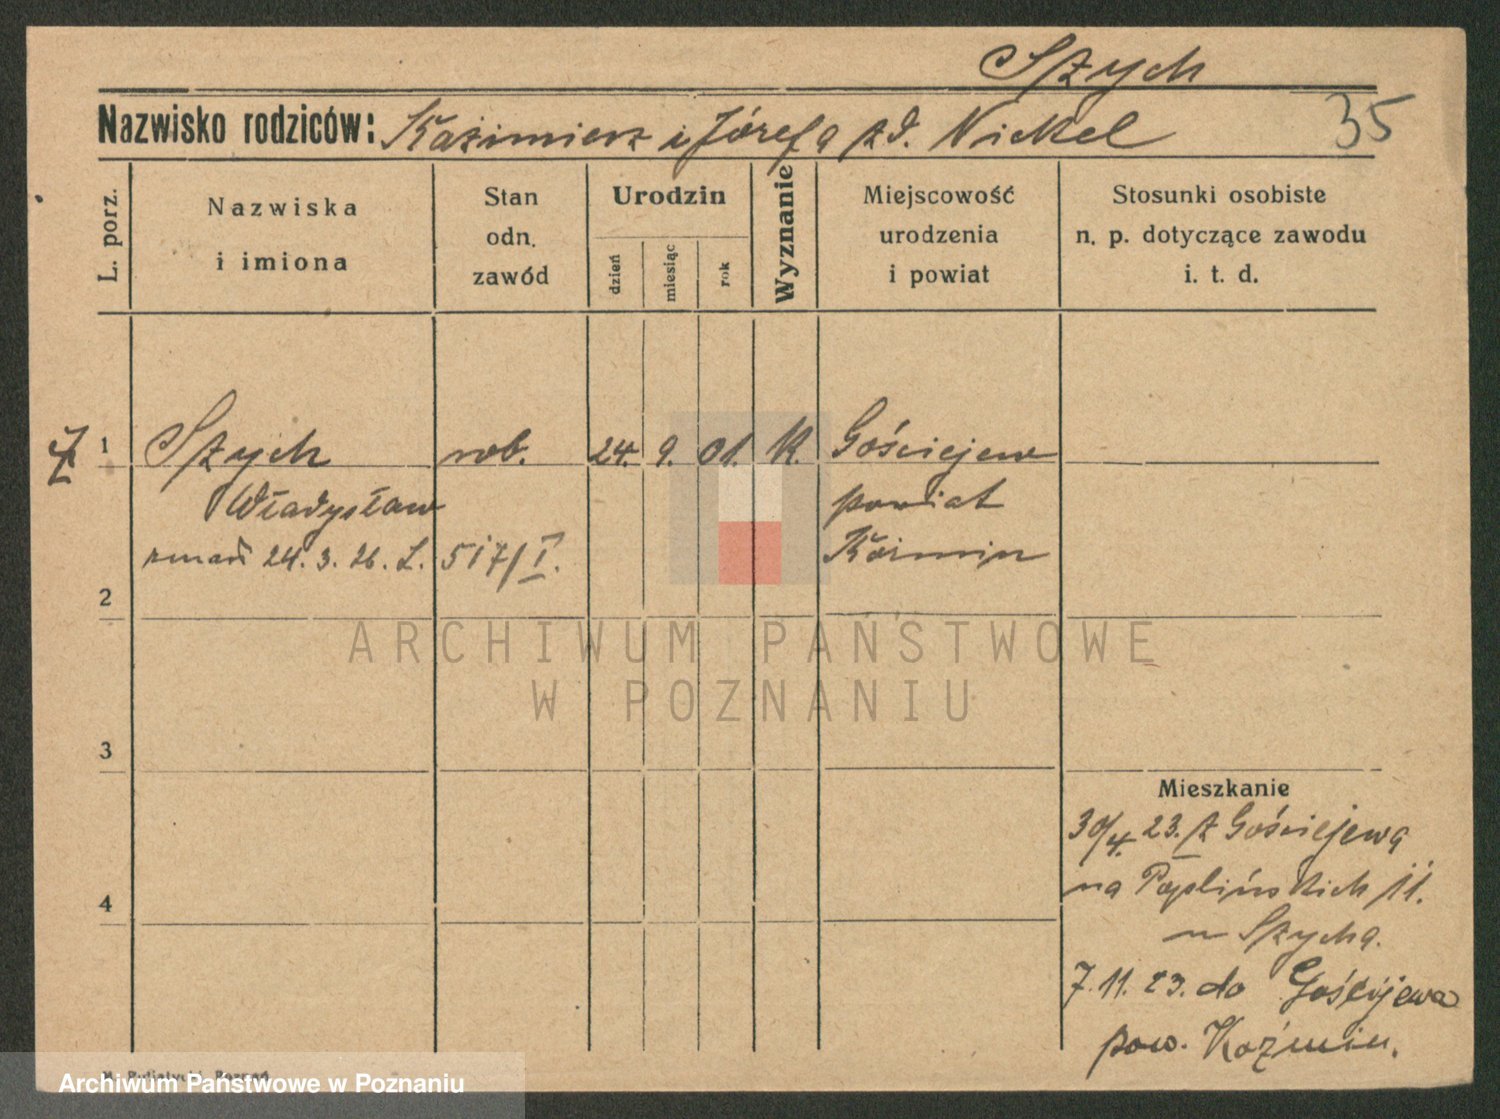 Szych
35
Nazwisko rodziców: Kaźimierz i Józefa zd. Nickel
L. porz.
Nazwiska
i imiona
Stan
odn.
zawód
Urodzin
dzień
miesiąc
rok
Wyznanie
Miejscowość
urodzenia
i powiat
Stosunki osobiste
n. p. dotyczące zawodu
i. t. d.
1 Szych rob. 24. 9. 01. K. Gościejew
Władysław powiat
24. 3. 26. L. 517/I. Koźmin
2
3
4
ARCHIWUM PAŃSTWOWE
W POZNANIU
Mieszkanie
30/4. 23. z Gościejewa
na Poplińskich 11.
u Szycha.
7. 11. 23. do Gościejewa
pow. Koźmin.
Poznań
Archiwum Państwowe w Poznaniu